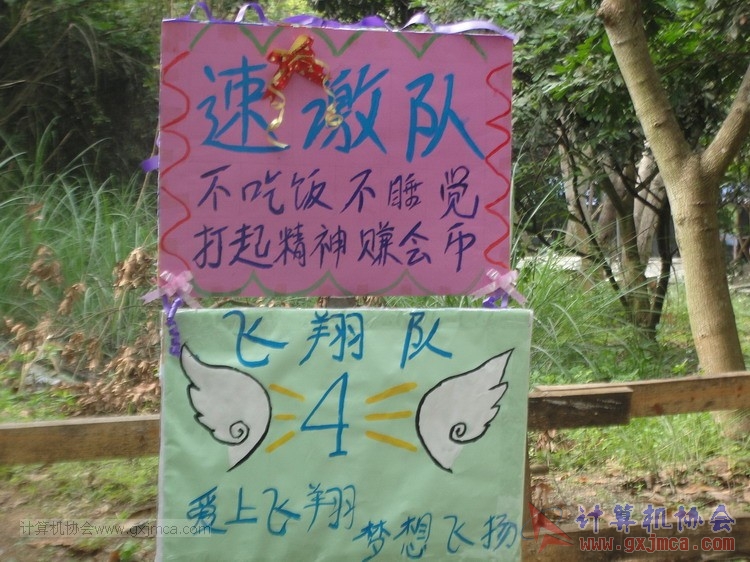 速激队
不吃饭不睡觉
打起精神赚会币
飞翔队
4
爱上飞翔
梦想飞扬
计算机协会www.gxjmca.com
计算机协会
www.gxjmca.com